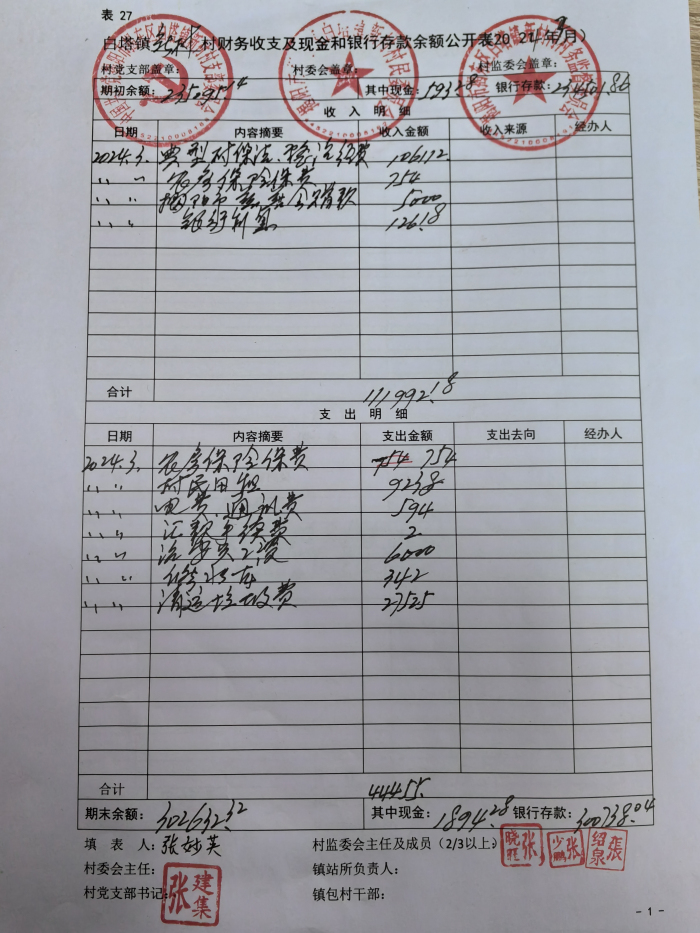 表 27
白塔镇 村财务收支及现金和银行存款余额公开表20 年 月）
村党支部盖章： 村委会盖章： 村监委会盖章：
期初余额： 其中现金： 银行存款：
收 入 明 细
日期 内容摘要 收入金额 收入来源 经办人
2024.3. 典型村保洁、 经费 106112.
〃 〃 农房保险保费 754
〃 〃 5000
〃 〃 银行利息 126.18
合计 111992.18
支 出 明 细
日期 内容摘要 支出金额 支出去向 经办人
2024.3. 农房保险保费 754 754
〃 〃 村民田租 9238
〃 〃 电费、通讯费 594
〃 〃 汇款手续费 2
〃 〃 治安员工资 6000
〃 〃 342
〃 〃 清运垃圾费 27525
合计 44455.
期末余额：302632.32 其中现金：1894.28 银行存款：300738.04
填 表 人： 村监委会主任及成员（2/3以上）
村委会主任： 镇站所负责人：
村党支部书记： 镇包村干部：
张建集
- 1 -